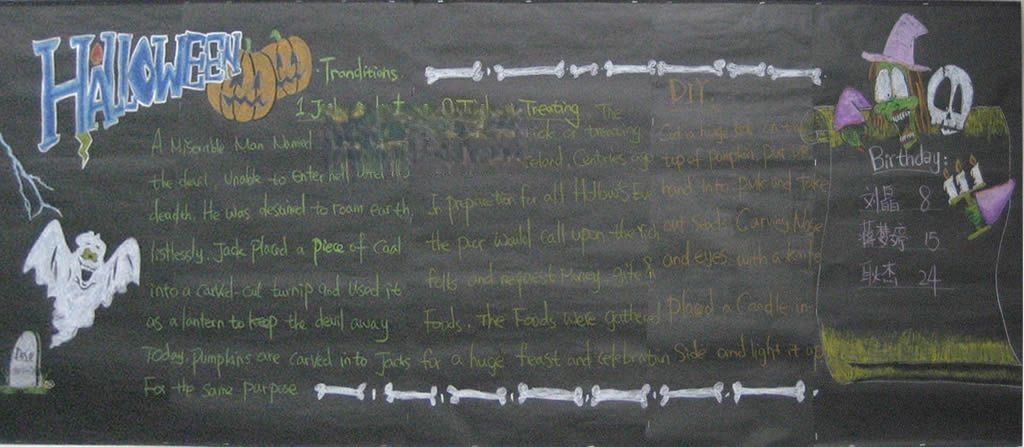 HALLOWEEN
Tranditions
1. Treating
A Miserable Man Named
the devil. Unable to enter hell until his
deadth. He was destined to roam earth
listlessly. Jack placed a piece of Coal
into a carved-cut turnip and used it
as a lantern to keep the devil away
Today, pumpkins are carved into Jacks
For the same purpose
The
of treating
Centuries ago
In preparation for all Hallow's Eve
the poor would call upon the rich
folks and request Money, gifts &
Foods. The Foods were gathered
for a huge feast and celebration
DIY:
Cut a huge hole
top of pumpkin. Put your
hand into pulp and take
out seeds. Carving Nose
and eyes with a knife
placed a Candle in-
side and light it up
Birthday:
刘晶 8
梦婷 15
耿杰 24